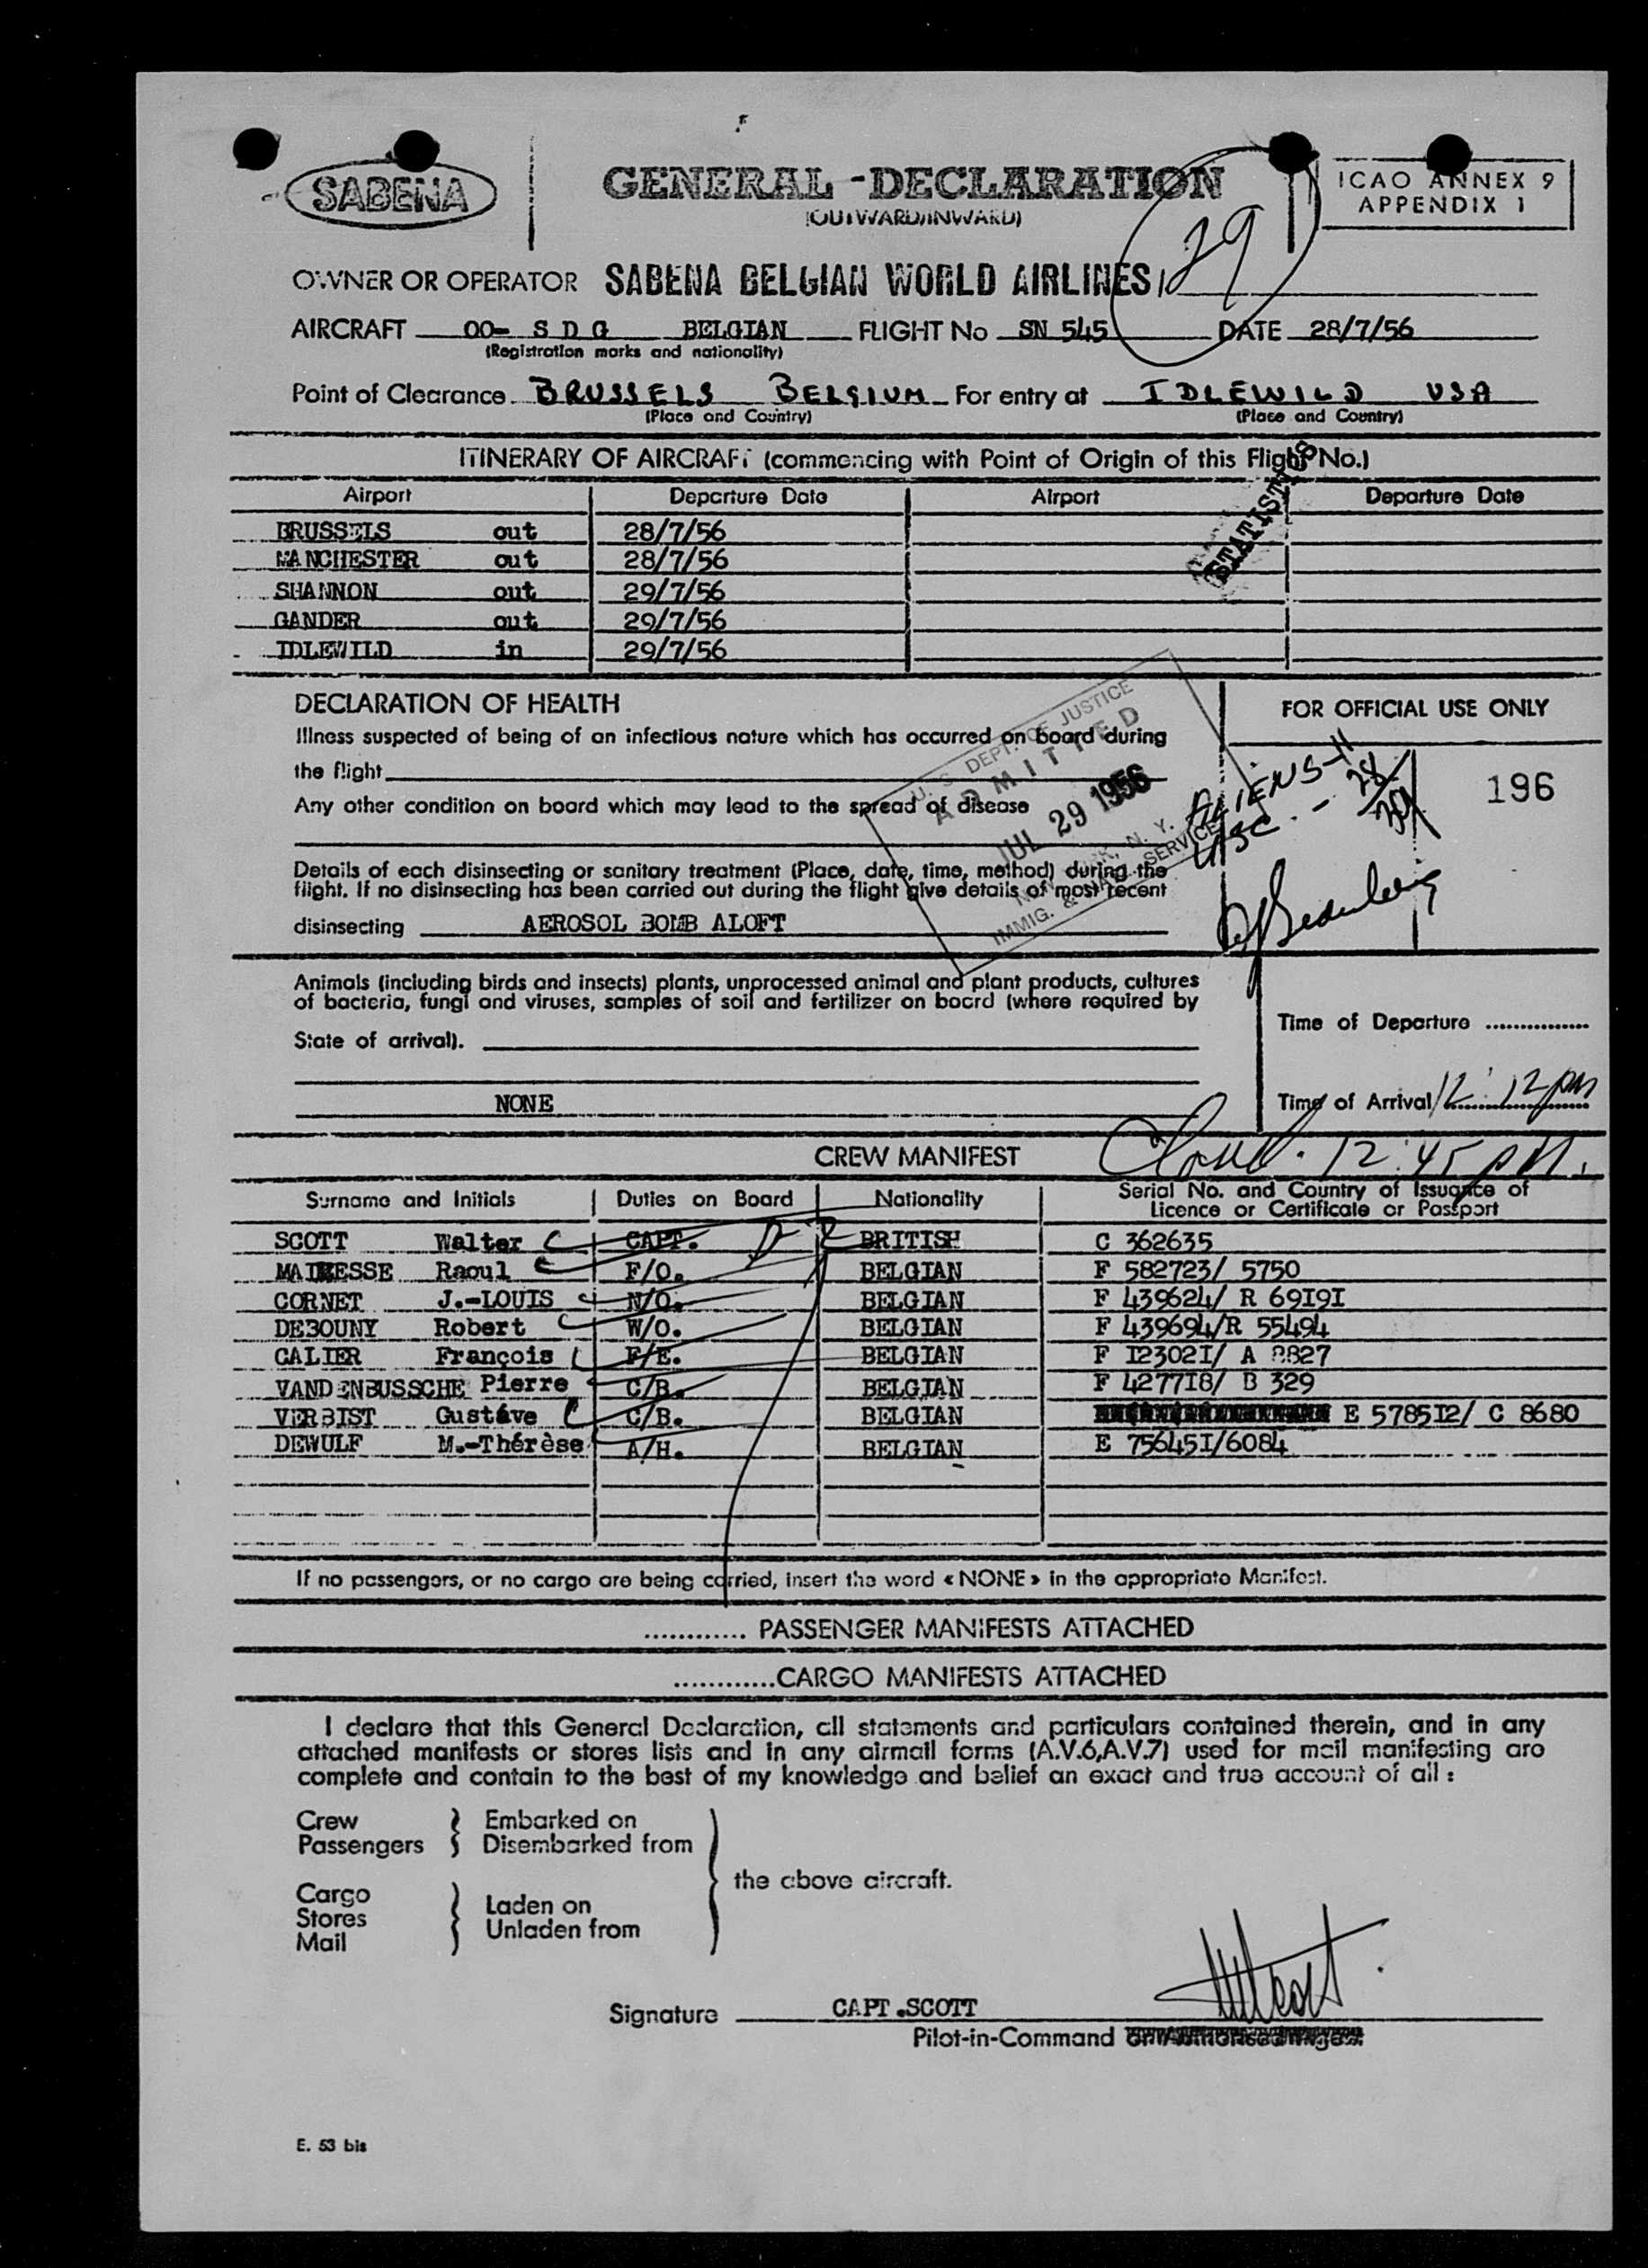 SABENA
GENERAL - DECLARATION
(OUTWARD/INWARD)
ICAO ANNEX 9
APPENDIX 1
29
OWNER OR OPERATOR SABENA BELGIAN WORLD AIRLINES
AIRCRAFT OO- S D G BELGIAN FLIGHT No SN 545 DATE 28/7/56
(Registration marks and nationality)
Point of Clearance BRUSSELS BELGIUM For entry at IDLEWILD USA
(Place and Country) (Place and Country)
ITINERARY OF AIRCRAFT (commencing with Point of Origin of this Flight No.)
STATISTICS
Airport Departure Date Airport Departure Date
BRUSSELS out 28/7/56
MANCHESTER out 28/7/56
SHANNON out 29/7/56
GANDER out 29/7/56
IDLEWILD in 29/7/56
DECLARATION OF HEALTH
Illness suspected of being of an infectious nature which has occurred on board during
the flight
Any other condition on board which may lead to the spread of disease
Details of each disinsecting or sanitary treatment (Place, date, time, method) during the
flight. If no disinsecting has been carried out during the flight give details of most recent
disinsecting AEROSOL BOMB ALOFT
U. S. DEPT. OF JUSTICE
ADMITTED
JUL 29 1956
NEW YORK, N. Y.
IMMIG. & NATZ. SERVICE
FOR OFFICIAL USE ONLY
ALIENS-11
USC. - 28
39
196
Animals (including birds and insects) plants, unprocessed animal and plant products, cultures
of bacteria, fungi and viruses, samples of soil and fertilizer on board (where required by
State of arrival).
NONE
Time of Departure
Time of Arrival 12:12 pm
12:45 PM.
CREW MANIFEST
Surname and Initials Duties on Board Nationality Serial No. and Country of Issuance of
Licence or Certificate or Passport
SCOTT Walter CAPT. D-2 BRITISH C 362635
MAIRESSE Raoul F/O. BELGIAN F 582723/ 5750
CORNET J.-LOUIS N/O. BELGIAN F 439624/ R 69I9I
DEBOUNY Robert W/O. BELGIAN F 439694/R 55494
CALIER François F/E. BELGIAN F I2302I/ A 8827
VANDENBUSSCHE Pierre C/B. BELGIAN F 4277I8/ B 329
VERBIST Gustáve C/B. BELGIAN E 5785I2/ C 8680
DEWULF M.-Thérèse A/H. BELGIAN E 75645I/6084
If no passengers, or no cargo are being carried, insert the word « NONE » in the appropriate Manifest.
............ PASSENGER MANIFESTS ATTACHED
............CARGO MANIFESTS ATTACHED
I declare that this General Declaration, all statements and particulars contained therein, and in any
attached manifests or stores lists and in any airmail forms (A.V.6,A.V.7) used for mail manifesting are
complete and contain to the best of my knowledge and belief an exact and true account of all :
Crew
Passengers
Embarked on
Disembarked from
Cargo
Stores
Mail
Laden on
Unladen from
the above aircraft.
Signature CAPT .SCOTT
Pilot-in-Command
E. 53 bis